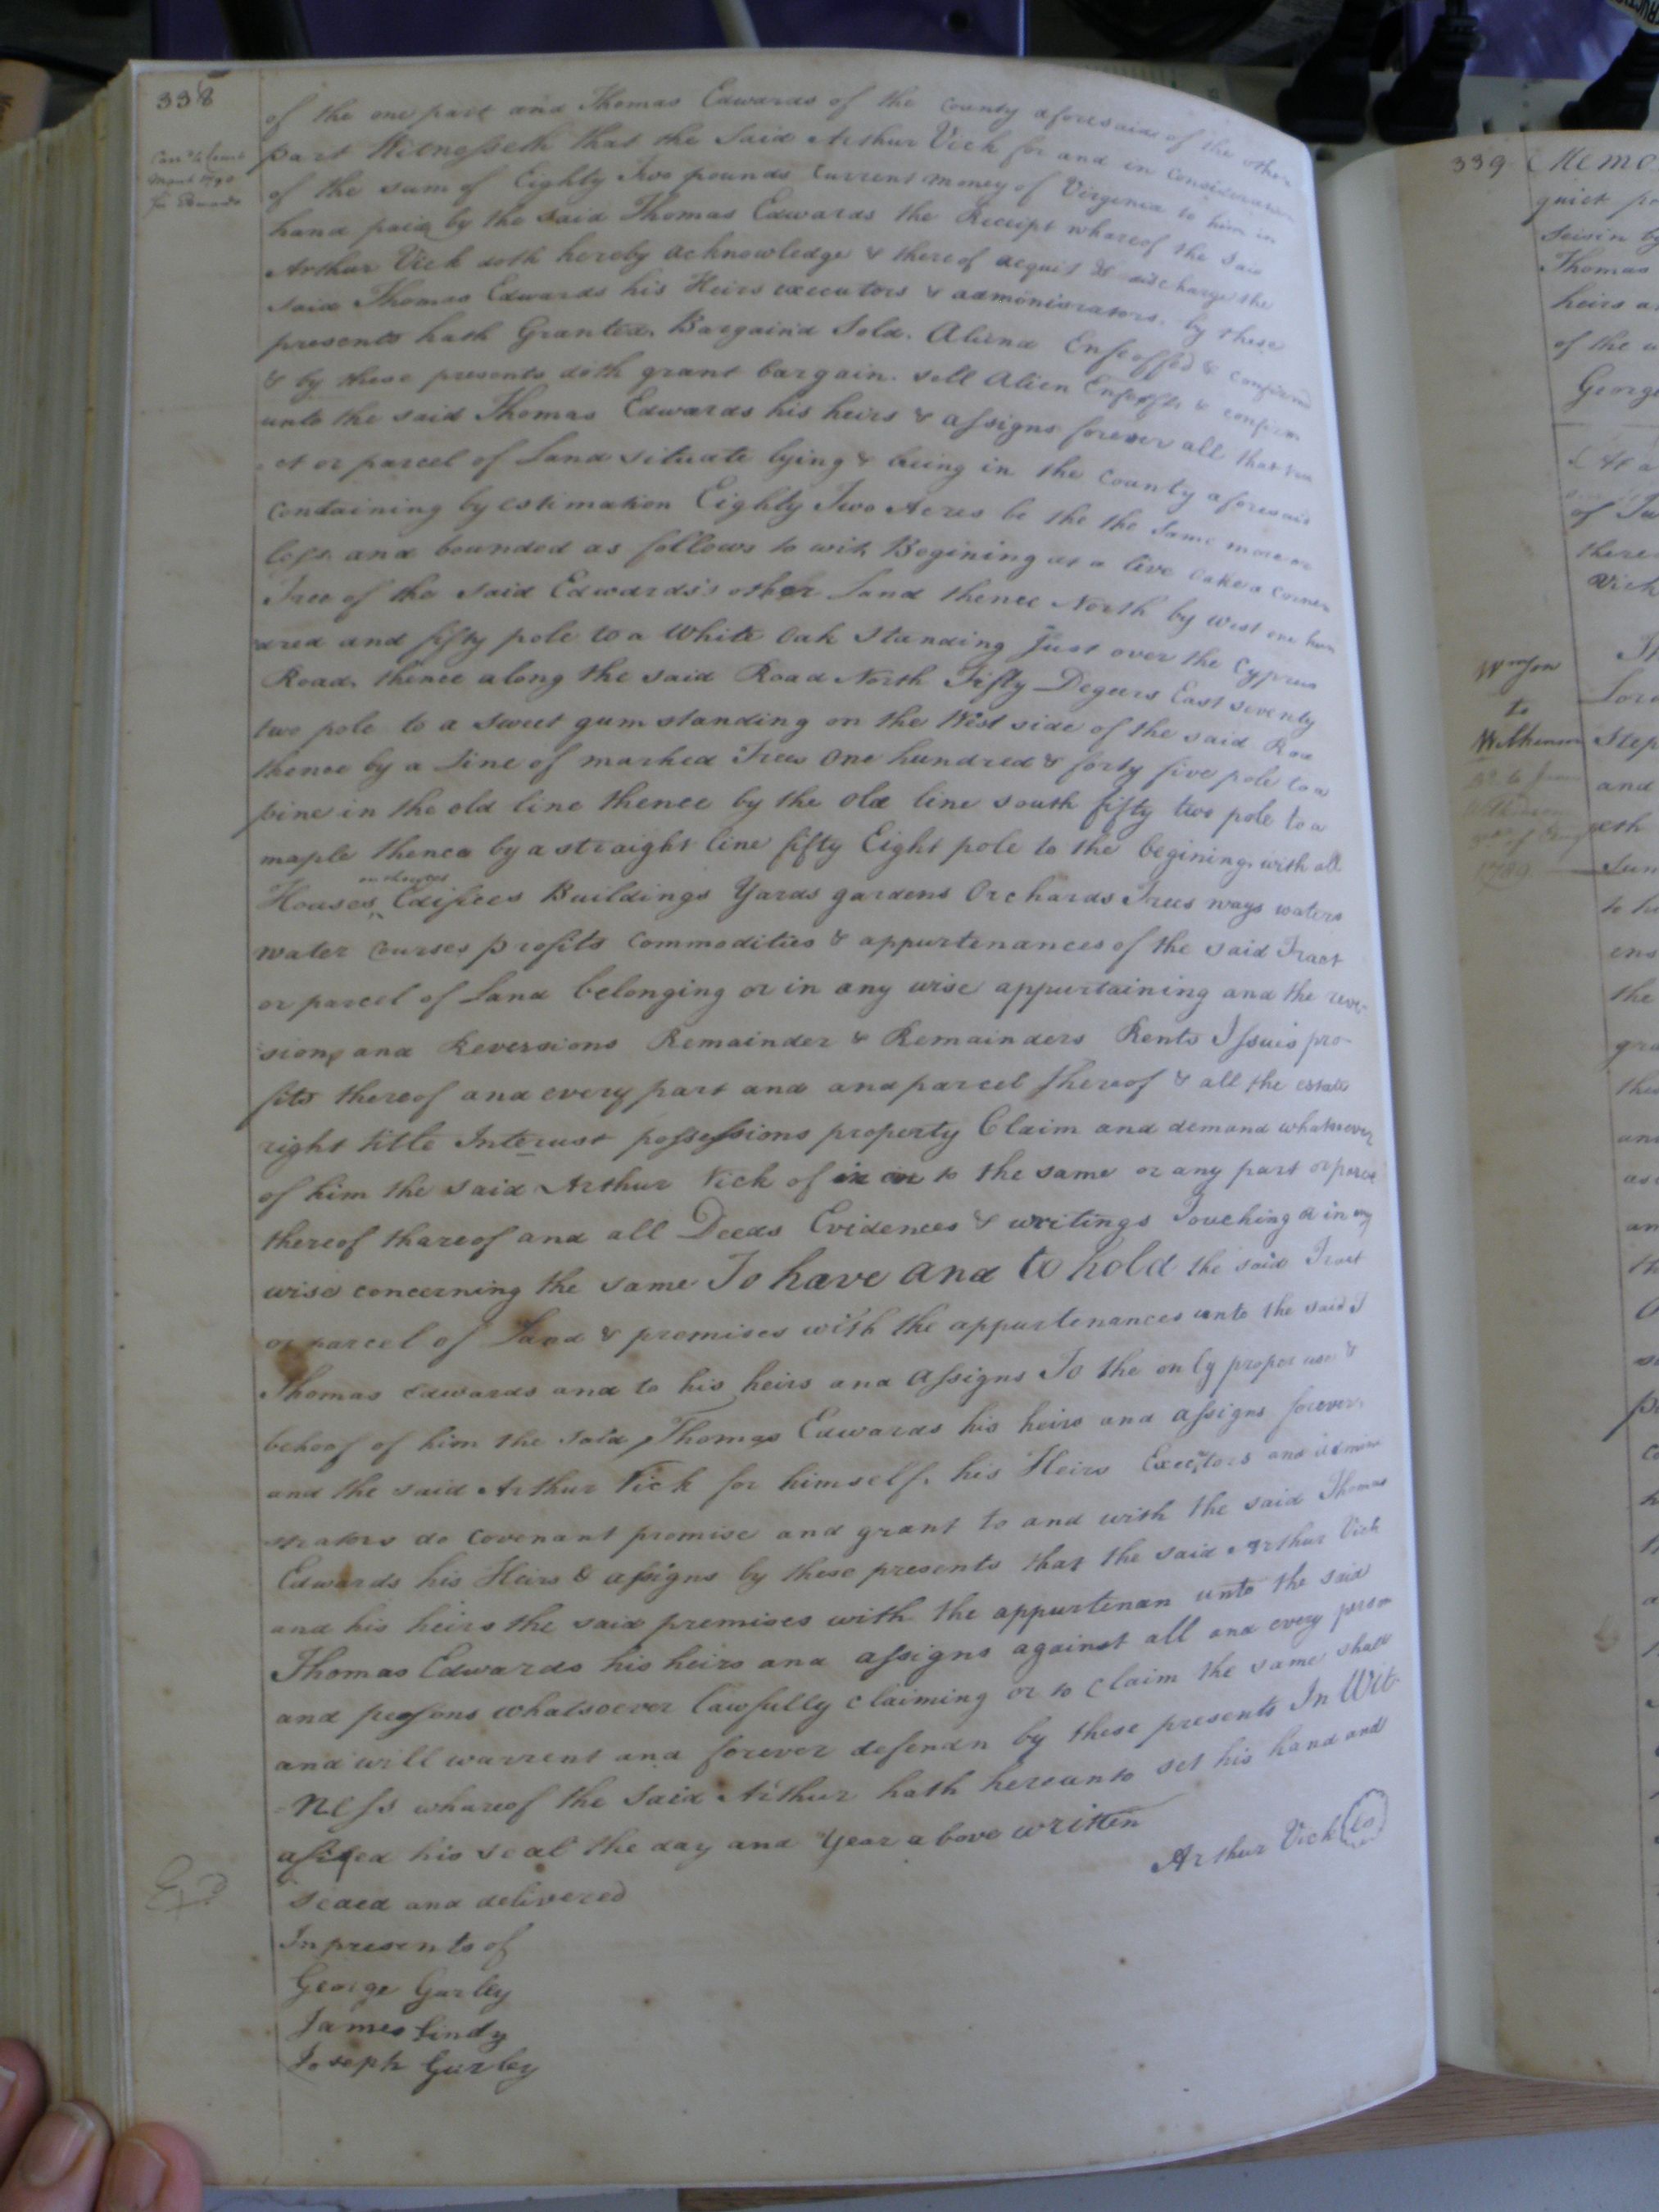 338
of the one part and Thomas Edwards of the County aforesaid of the other
part Witnesseth that the Said Arthur Vick for and in Consideration
of the sum of Eighty Two pounds Current money of Virginia to him in
hand paid by the said Thomas Edwards the Receipt whareof the Said
Arthur Vick doth hereby acknowledge & thereof acquit & discharge the
said Thomas Edwards his Heirs executors & admonisrators. by these
presents hath Granted. Bargaind Sold. Aliend Enfeoffed & confirmed
& by these presents doth grant bargain. sell Alien Enfeoffe & confirm
unto the said Thomas Edwards his heirs & assigns forever all that tra
ct or parcel of Land situate lying & being in the County aforesaid
Containing by estimation Eighty Two Acres be the the Same more or
less. and bounded as follows to wit. Begining at a live oake a corner
Tree of the said Edwards's other Land thence North by West one hun
dred and fifty pole to a White Oak Standing Just over the Cyprus
Road. thence along the said Road North Fifty Degees East seventy
two pole to a Sweet gum standing on the West side of the said Roa
thence by a line of marked Trees One hundred & forty five pole to a
pine in the old line thence by the old line south fifty two pole to a
maple thence by a straight line fifty Eight pole to the begining. with all
Houses, Edifices Buildings Yards gardens Orchards Trees ways waters
water Courses profits Commodities & appurtenances of the said Tract
or parcel of Land belonging or in any wise appurtaining and the rever-
sions and Reversions Remainder & Remainders Rents Issuis pro-
fits thereof and every part and and parcel thereof & all the estate
right title Interust possessions property Claim and demand whatsoever
of him the said Arthur Vick of in or to the same or any part or parcel
thereof thareof and all Deeds Evidences & writings Touching or in any
wise concerning the same To have and to hold the said Tract
or parcel of Land & premises with the appurtenances unto the said T
Thomas Edwards and to his heirs and assigns To the only proper use &
behoof of him the said Thomas Edwards his heirs and assigns forever.
and the said Arthur Vick for himself. his Heirs Executors and admini
strators do Covenant promise and grant to and with the said Thomas
Edwards his Heirs & assigns by these presents that the said Arthur Vick
and his heirs the said premises with the appurtenan unto the said
Thomas Edwards his heirs and assigns against all and every person
and persons whatsoever lawfully claiming or to claim the same shall
and will warrent and forever defendn by these presents In Wit-
=ness whareof the Said Arthur hath hereunto set his hand and
afixed his seal the day and year above written
Arthur Vick (LS)
Sealed and delivered
In presents of
George Gurley
James Lindy
Joseph Gurley
339
Memo
quiet po
Seisin by
Thomas
heirs an
of the w
George
At a
of
there
Vick
to
Wilkenson
1789
Step
and
to
the